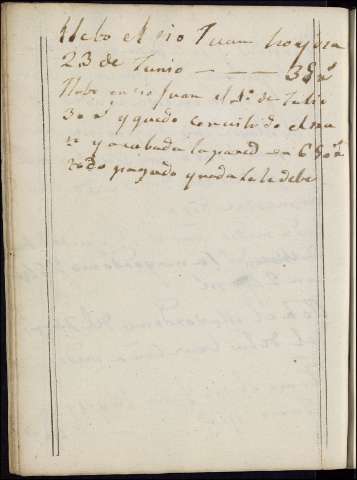 Llebo el tio Juan hoy dia
23 de Junio — — — 38 r.s
Llebo tio Juan el 1.º de Julio
30 r.s y quedo concluido el
y acabada la pared en 680 r.s
todo pagado y nada se le debe